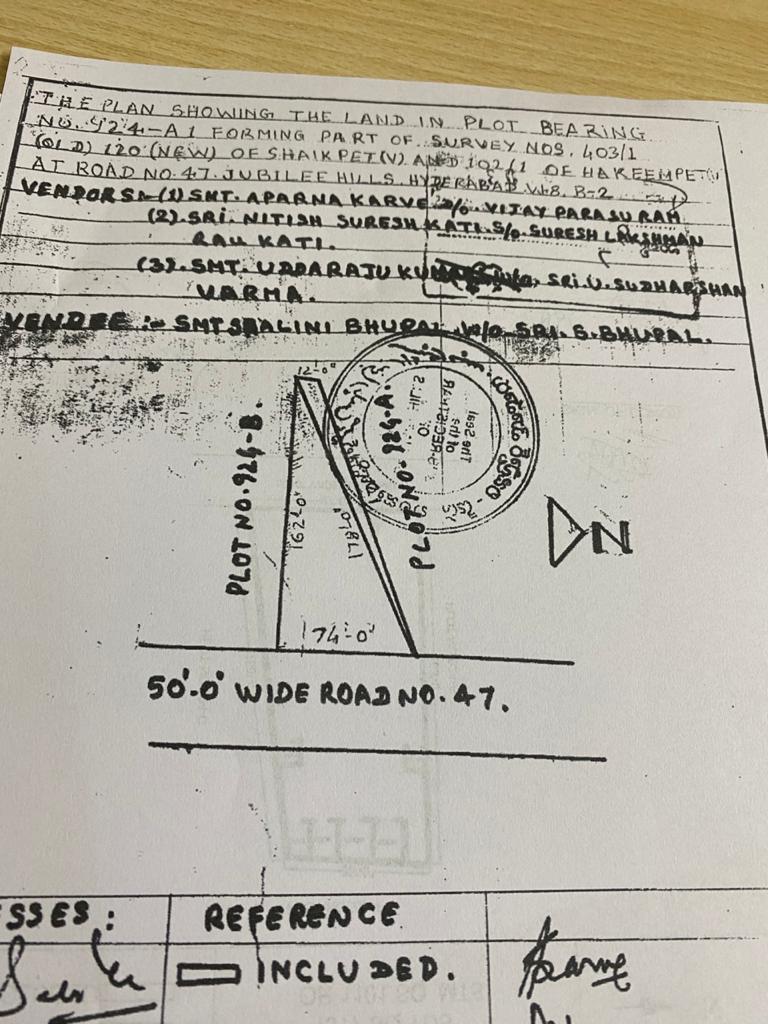 THE PLAN SHOWING THE LAND IN PLOT BEARING
NO. 924-A1 FORMING PART OF SURVEY NOS. 403/1
(OLD) 120 (NEW) OF SHAIKPET(V) AND 102/1 OF HAKEEMPET(V)
AT ROAD NO. 47. JUBILEE HILLS. HYDERABAD
VENDORS:- (1) SMT. APARNA KARVE D/o. VIJAY PARASURAM
(2). SRI. NITISH SURESH KATI. S/o. SURESH LAKSHMAN
RAU KATI.
(3). SMT. UDDARAJU W/o, SRI. U. SUDHARSHAN
VARMA.
VENDEE :- SMT SHALINI BHUPAL W/o SRI. S. BHUPAL.
12'-0"
PLOT NO. 924-B.
162'-0"
178'-0"
PLOT NO. 924-A.
The Seal
of the
N
74'-0"
50'.0" WIDE ROAD NO. 47.
SSES:
REFERENCE
INCLUDED.